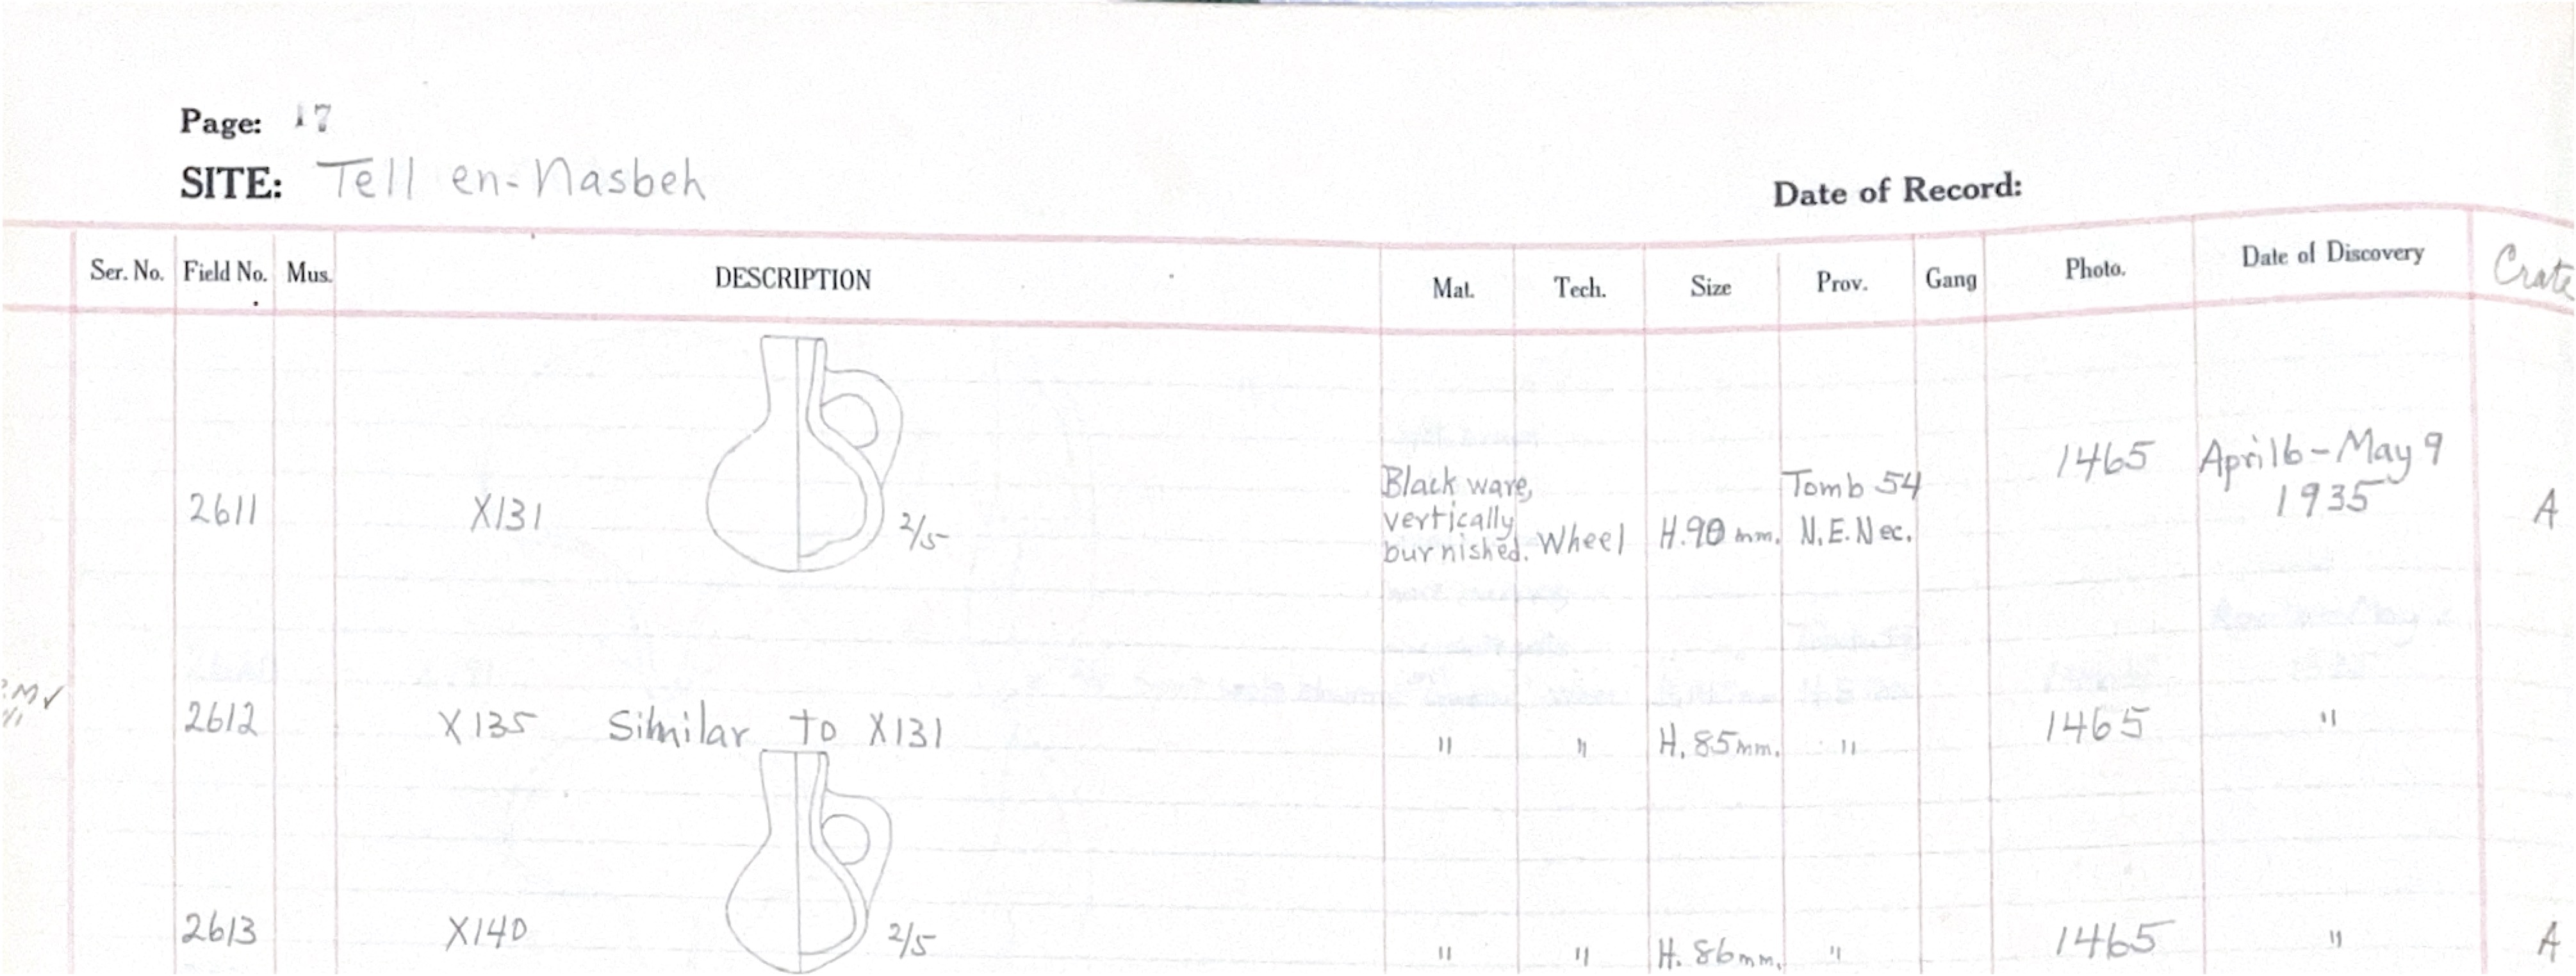 Page: 17
SITE: Tell en-Nasbeh
Date of Record:
Ser. No. Field No. Mus. DESCRIPTION Mat. Tech. Size Prov. Gang Photo. Date of Discovery Crate
2611 X131 2/5 Black ware, vertically burnished. Wheel H.90 mm. Tomb 54 N.E.Nec. 1465 April6-May 9 1935 A
2612 X135 Similar to X131 " " H. 85mm. " 1465 "
2613 X140 2/5 " " H. 86mm. " 1465 " A